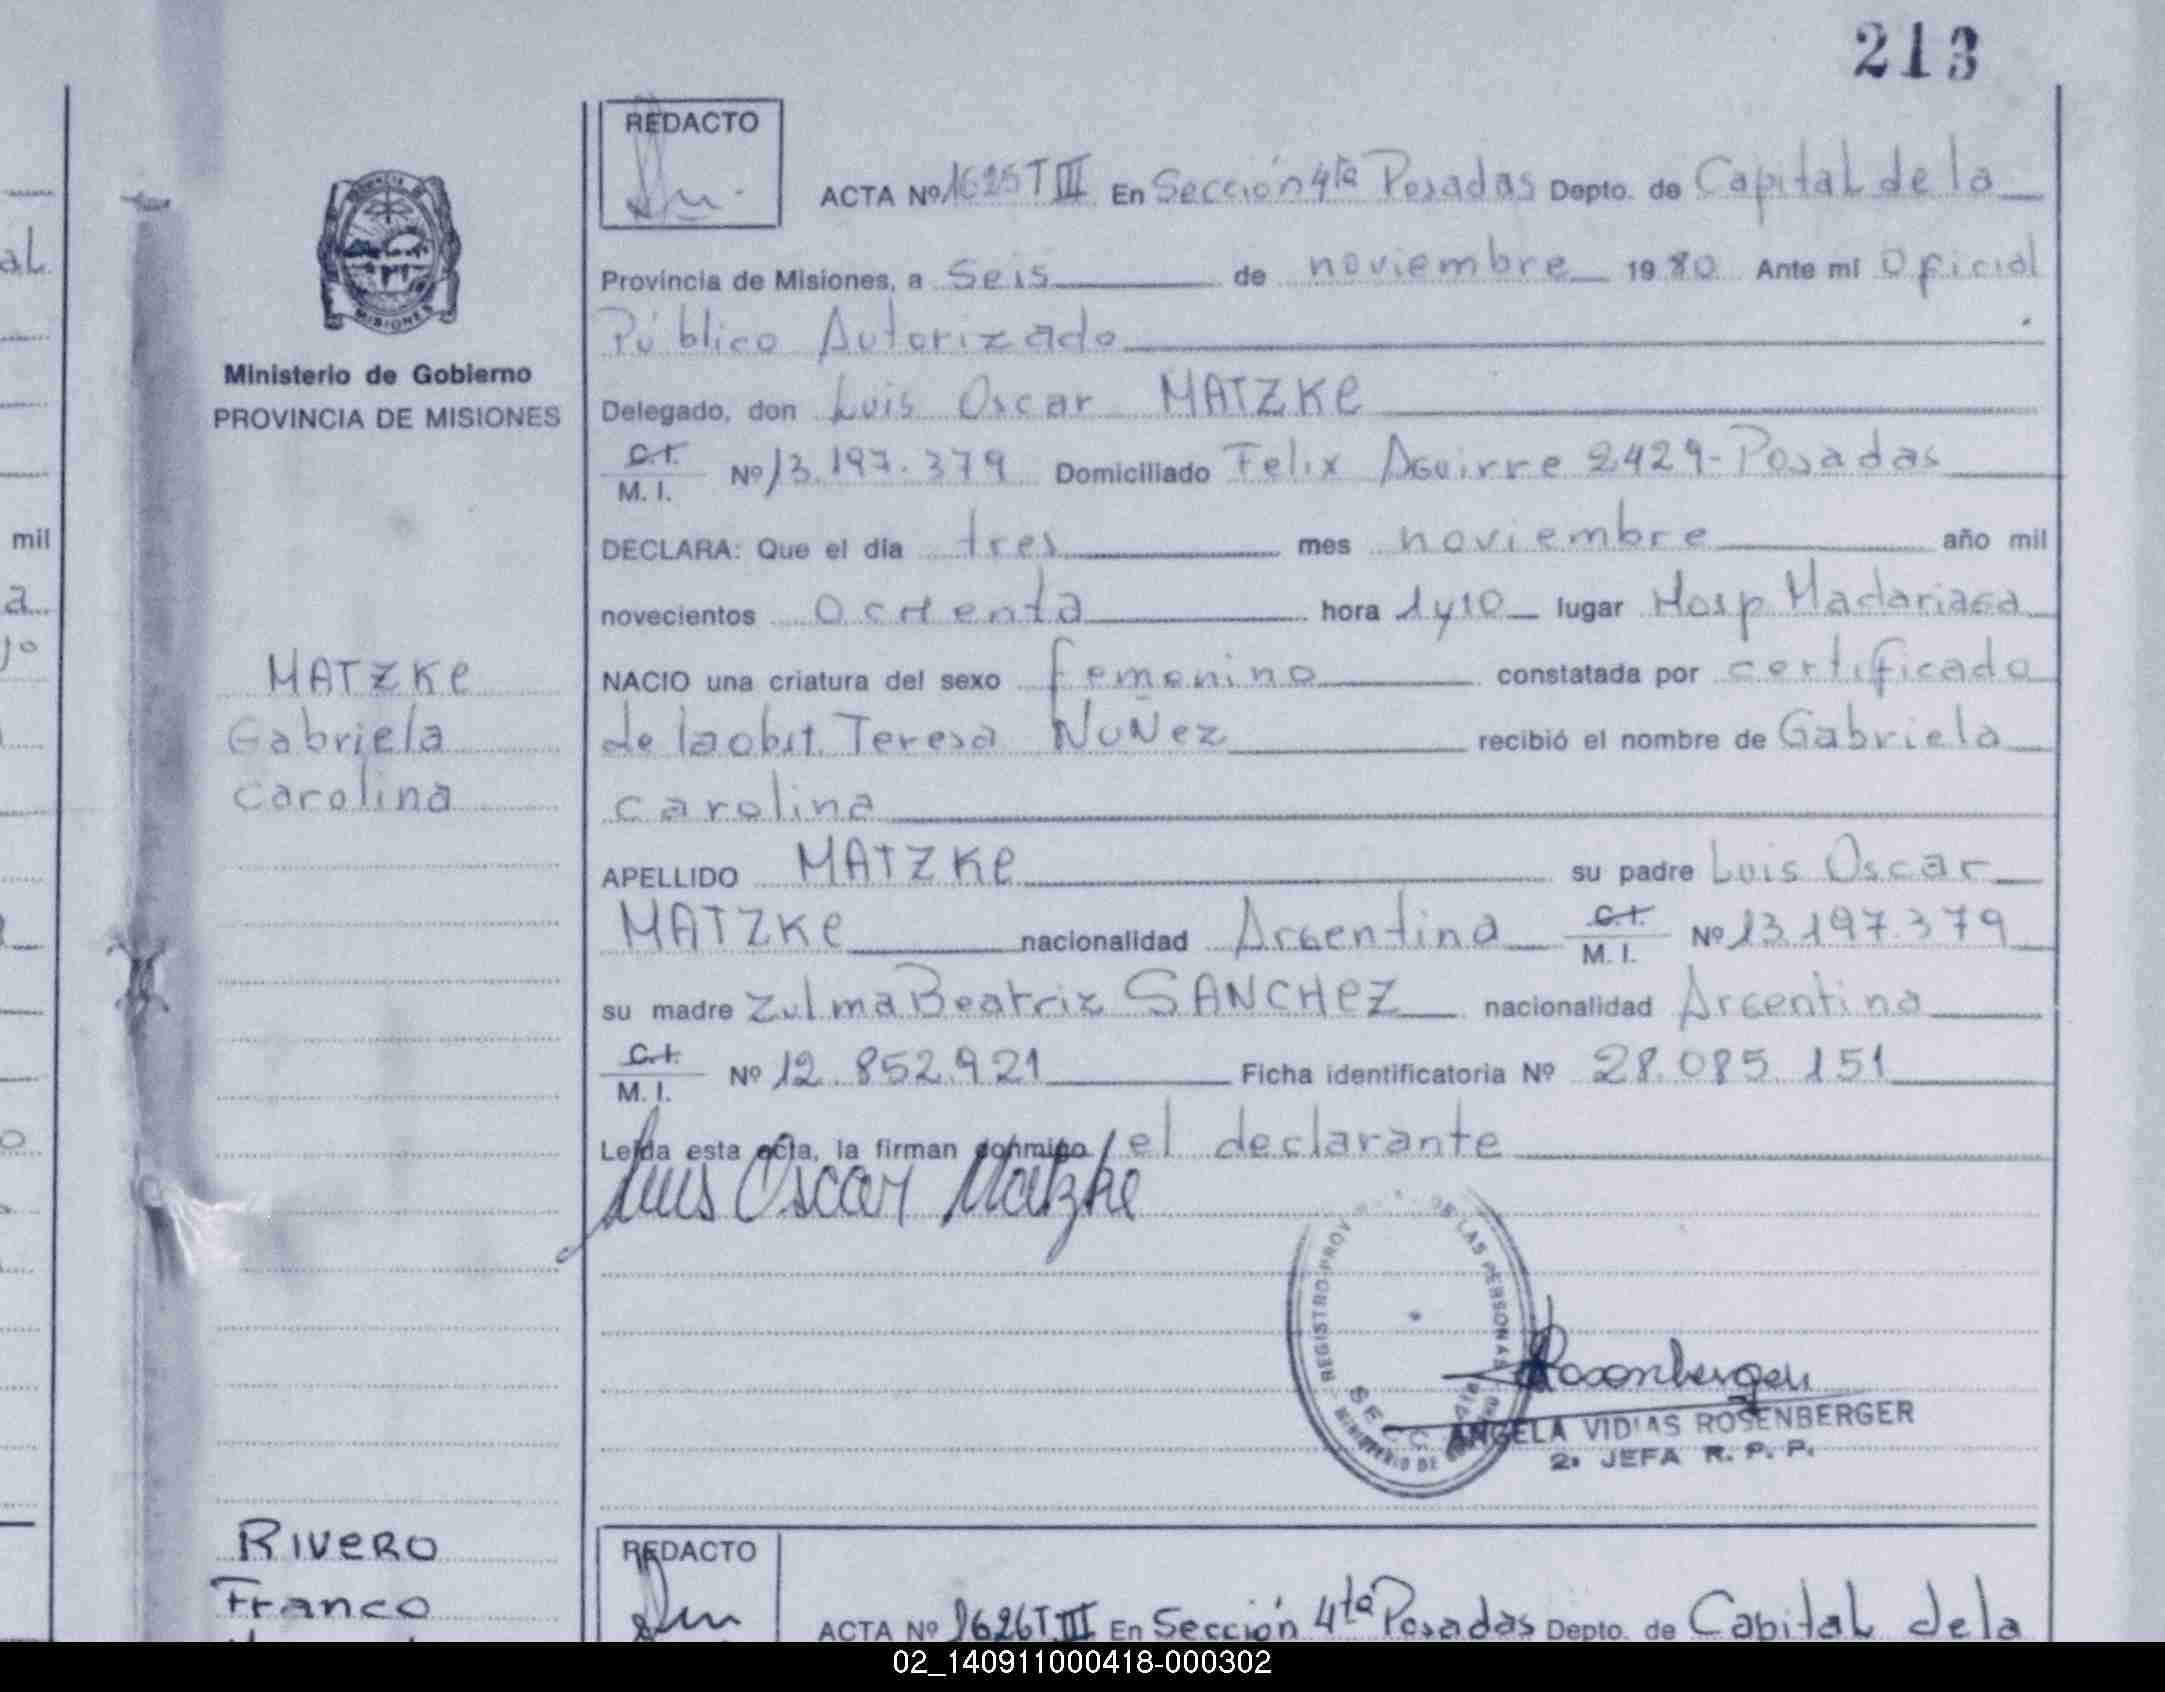 213
REDACTO
ACTA Nº 1625 T III En Sección 4ta Posadas Depto. de Capital de la
Provincia de Misiones, a Seis de noviembre 1980 Ante mi Oficial
Público Autorizado
Ministerio de Gobierno
PROVINCIA DE MISIONES
MISIONES
Delegado, don Luis Oscar MATZKe
C.I.
M. I. Nº 13.197.379 Domiciliado Felix Aguirre 2429-Posadas
DECLARA: Que el dia tres mes noviembre año mil
novecientos ocHenta hora 1y10 lugar Hosp Madariaga
MATZKe
Gabriela
Carolina
NACIO una criatura del sexo femenino constatada por certificado
de la obst. Teresa NuÑez recibió el nombre de Gabriela
carolina
APELLIDO MATZKe su padre Luis Oscar
MATZKe nacionalidad Argentina C.I.
M. I. Nº 13.197.379
su madre Zulma Beatriz SANCHeZ nacionalidad Argentina
C.I.
M. I. Nº 12.852.921 Ficha identificatoria Nº 28.085.151
Leida esta acta, la firman conmigo el declarante
Luis Oscar Matzke
REGISTRO PROV DE LAS PERSONAS
MINISTERIO DE
SECC. 4ta
Rosenberger
ANGELA VIDIAS ROSENBERGER
2a JEFA R. P. P.
RIVeRO
Franco
REDACTO
ACTA Nº 1626 T III En Sección 4ta Posadas Depto. de Capital dela
al
mil
a
jo
o
02_140911000418-000302